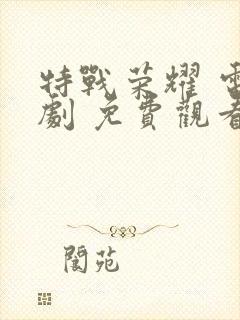 特戰荣耀 電
劇 免費觀看
閬苑